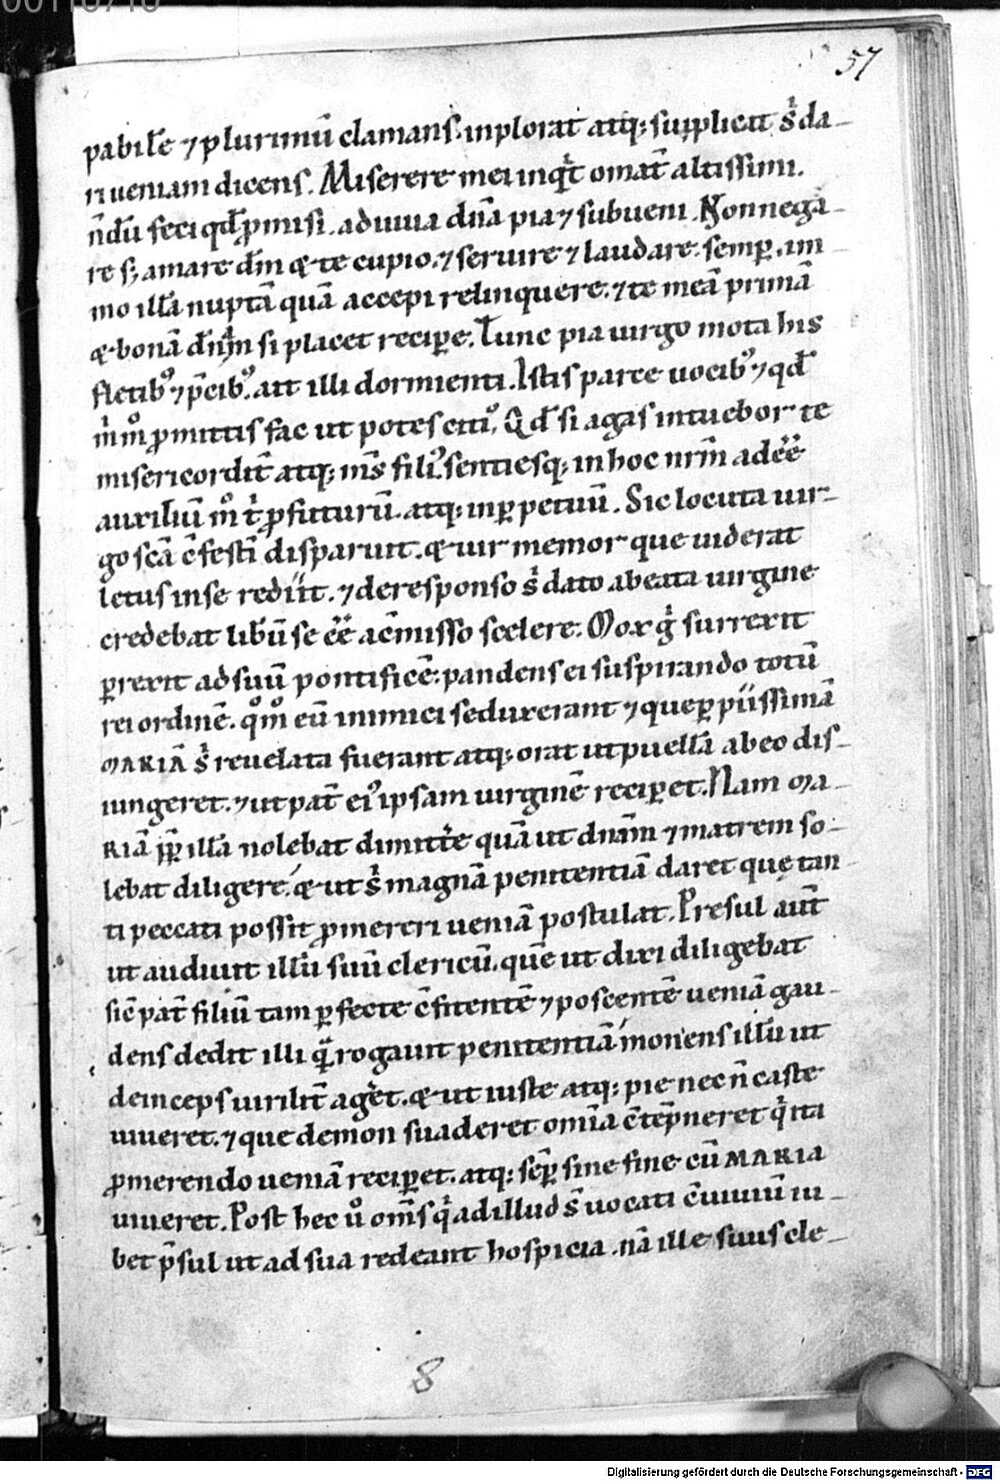 00110710
57
pabil̄e ⁊ plurimū clamans. inplorat atq; supplicit s̉ da-
ri ueniam dicens. Miserere mei inqͥt om̄at altissimi.
n̄dū feci qd̄ ꝓmisi. adiuua dn̄a pia ⁊ subueni. Non nega-
re s; amare dm̄ & te cupio. ⁊ seruire ⁊ laudare semꝑ. im-
mo illā nuptā quā accepi relinquere. ⁊ te meā primā
& bonā dn̄am si placet reciꝑe. Tunc pia uirgo mota his
fletibꝰ ⁊ p̄cibꝰ. ait illi dormienti. Istis parce uocibꝰ ⁊ qd̄
m̄ mͦ ꝓmittis fac ut potes citiꝰ. Qd̄ si agas intuebor te
misericordit̄ atq; m̄s filiꝰ. sentiesq; in hoc nr̄m adēē
auxiliū mͦ tͥ ꝓfuturū. atq; in ꝑpetuū. Sic locuta uir-
go scā c̄festī disparuit. & uir memor que uiderat
letus in se rediit. ⁊ de responso s̉ dato a beata uirgine
credebat libū se ēē ac̄misso scelere. Mox gͥ surrexit
ꝑrexit ad suū pontificē. pandens ei suspirando totū
rei ordinē. qͦmͦ eū inimici seduxerant ⁊ que ꝑ piissimā
MARIĀ s̉ reuelata fuerant atq; orat ut puellā ab eo dis-
iungeret. ⁊ ut pat̄ eiꝰ ipsam uirginē reciꝑet. Nam MA-
RIĀ ꝓꝑ illā nolebat dimitt̉e quā ut dn̄am ⁊ matrem so-
lebat diligere. & ut s̉ magnā penitentiā daret quę tan-
ti peccati possit ꝓmereri ueniā postulat. Presul aut̄
ut audiuit illū suū clericū. quē ut dixi diligebat
sic̄ pat̄ filiū tam ꝑfecte c̄fitentē ⁊ poscentē ueniā gau-
dens dedit illi qͣ̄ rogauit penitentiā monens illū ut
deinceps uirilit̄ ageret. & ut iuste atq; pie nec n̄ caste
uiueret. ⁊ que demon suaderet omīa c̄tēpneret qͥ ita
ꝓmerendo ueniā reciꝑet. atq; sēꝑ sine fine cū MARIA
uiueret. Post hec uͦ om̄s qͥ ad illud s̄ uocati c̄uiuiū iu-
bet p̄sul ut ad sua redeant hospicia. nā ille suus cle-
8
Digitalisierung gefördert durch die Deutsche Forschungsgemeinschaft - DFG